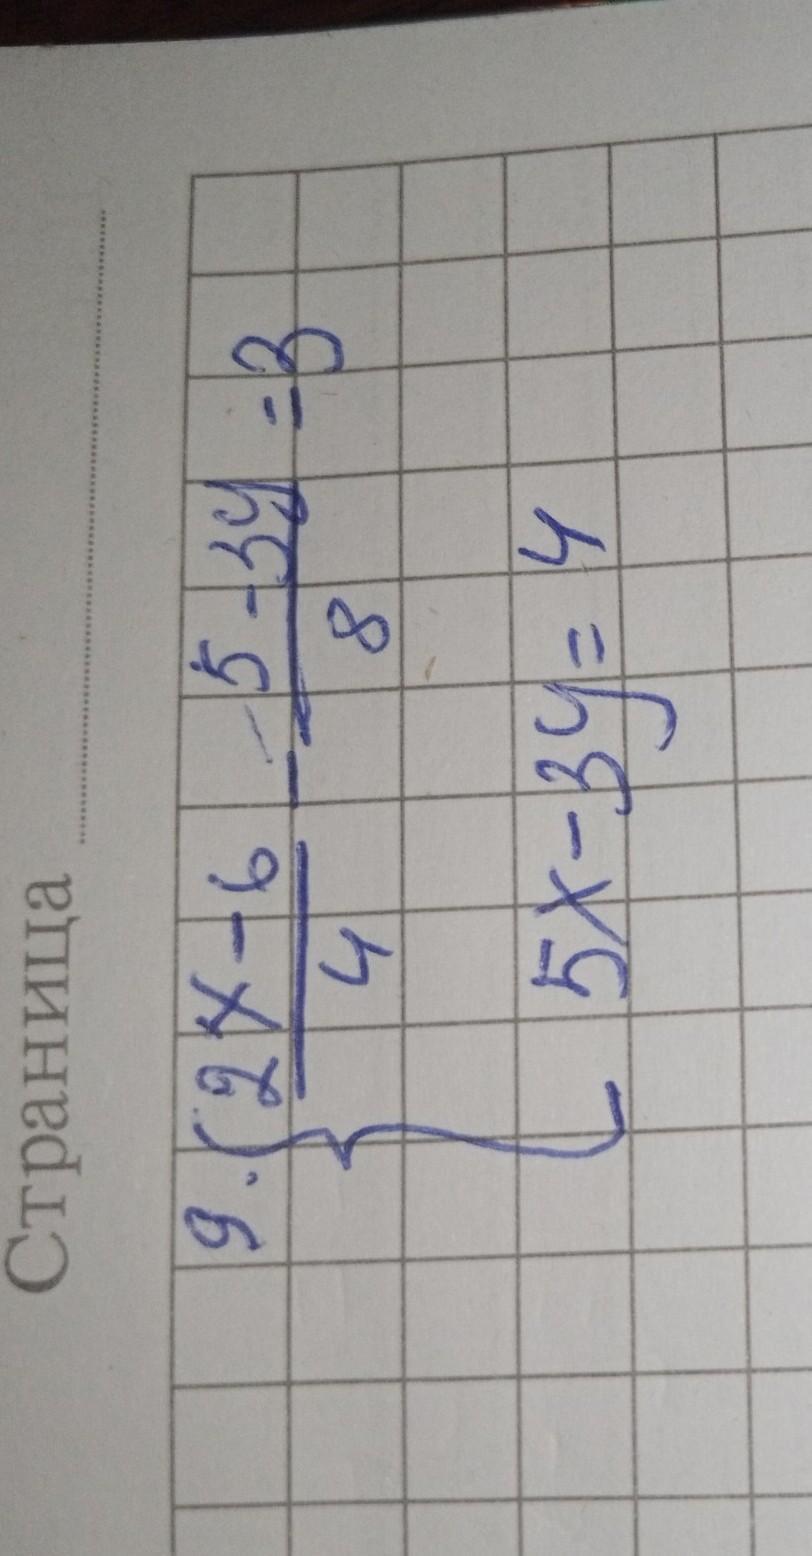 Страница
9. { (2x-6)/4 - (5-3y)/8 = 3
5x-3y=4